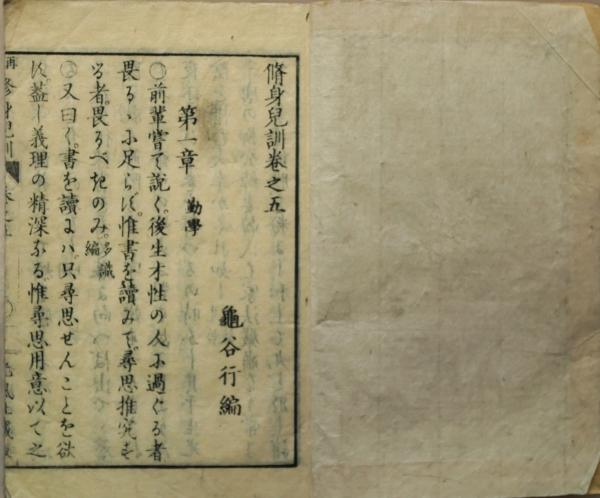 脩身兒訓卷之五
龜谷行編
第一章 勤學
○前輩嘗て說く後生才性の人に過ぐる者
畏るゝに足らず惟書を讀みて尋思推究す
る者畏るべきのみ 多識編
○又曰く書を讀にハ只尋思せんことを欲
す蓋し義理の精深なる惟尋思用意以て之
脩身兒訓